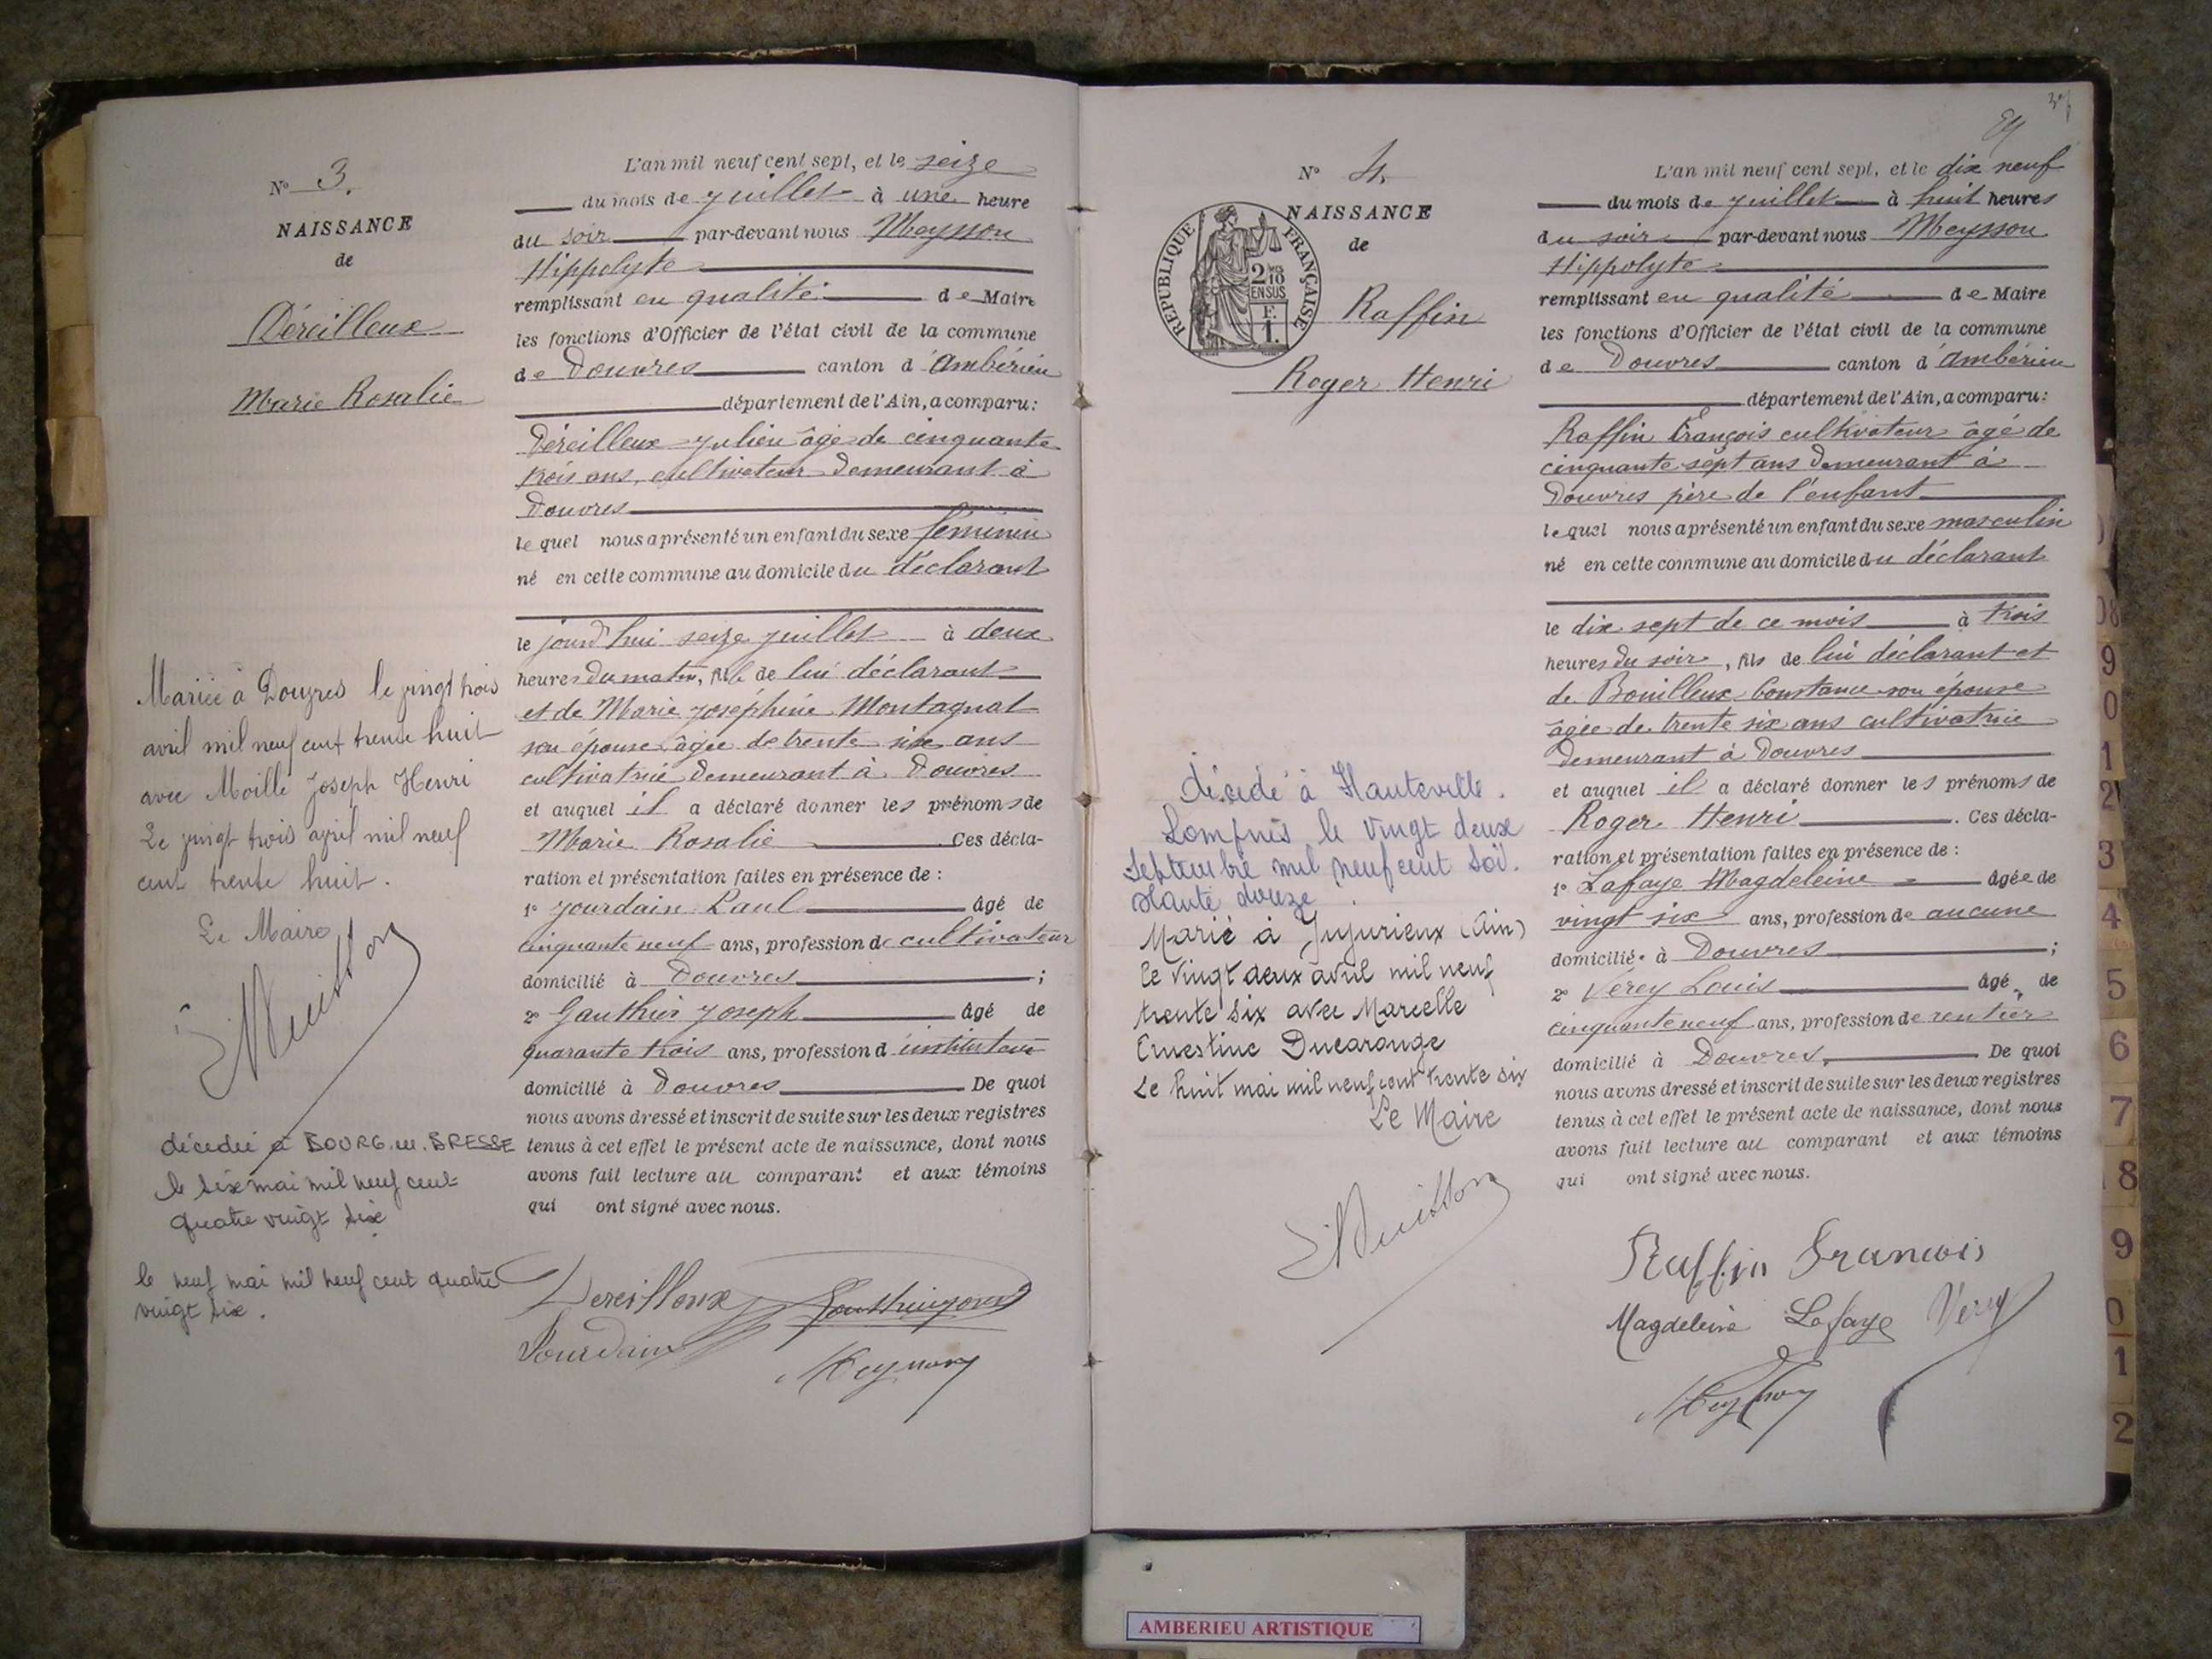 N° 3.
NAISSANCE
de
Déreilleux
Marie Rosalie
Mariée à Douvres le vingt trois
avril mil neuf cent trente huit
avec Moille Joseph Henri
Le vingt trois avril mil neuf
cent trente huit.
Le Maire
décédée à BOURG en BRESSE
le six mai mil neuf cent
quatre vingt six
le neuf mai mil neuf cent quatre
vingt six.
L'an mil neuf cent sept, et le seize
du mois de juillet à une heure
du soir par-devant nous Meysson
Hippolyte
remplissant en qualité de Maire
les fonctions d'Officier de l'état civil de la commune
de Douvres canton d'Ambérieu
département de l'Ain, a comparu:
Déreilleux Julien âgé de cinquante
trois ans, cultivateur demeurant à
Douvres
lequel nous a présenté un enfant du sexe féminin
né en cette commune au domicile du déclarant
le jourd'hui seize juillet à deux
heures du matin, fille de lui déclarant
et de Marie Joséphine Montagnat
son épouse, âgée de trente six ans
cultivatrice demeurant à Douvres
et auquel il a déclaré donner les prénoms de
Marie Rosalie Ces décla-
ration et présentation faites en présence de :
1° Jourdain Paul âgé de
cinquante neuf ans, profession de cultivateur
domicilié à Douvres ;
2° Gauthier Joseph âgé de
quarante trois ans, profession d'instituteur
domicilié à Douvres De quoi
nous avons dressé et inscrit de suite sur les deux registres
tenus à cet effet le présent acte de naissance, dont nous
avons fait lecture au comparant et aux témoins
qui ont signé avec nous.
Dereilleux
Jourdain
Meysson
N° 4.
NAISSANCE
de
RÉPUBLIQUE FRANÇAISE
2 10es
EN SUS
F.
1.
Raffin
Roger Henri
décédé à Hauteville.
Lompnes le vingt deux
Septembre mil neuf cent soi.
xante douze.
Marié à Jujurieux (Ain)
le vingt deux avril mil neuf
trente six avec Marcelle
Ernestine Ducarouge
Le huit mai mil neuf cent trente six
Le Maire
L'an mil neuf cent sept, et le dix neuf
du mois de juillet à huit heures
du soir par-devant nous Meysson
Hippolyte
remplissant en qualité de Maire
les fonctions d'Officier de l'état civil de la commune
de Douvres canton d'Ambérieu
département de l'Ain, a comparu:
Raffin François cultivateur âgé de
cinquante sept ans demeurant à
Douvres père de l'enfant
lequel nous a présenté un enfant du sexe masculin
né en cette commune au domicile du déclarant
le dix sept de ce mois à trois
heures du soir, fils de lui déclarant et
de Bouilloux Constance son épouse
âgée de trente six ans cultivatrice
demeurant à Douvres
et auquel il a déclaré donner les prénoms de
Roger Henri . Ces décla-
ration et présentation faites en présence de :
1° Lafaye Magdeleine âgée de
vingt six ans, profession de aucune
domiciliée à Douvres ;
2° Vérey Louis âgé de
cinquante neuf ans, profession de rentier
domicilié à Douvres, De quoi
nous avons dressé et inscrit de suite sur les deux registres
tenus à cet effet le présent acte de naissance, dont nous
avons fait lecture au comparant et aux témoins
qui ont signé avec nous.
Raffin Francois
Magdeleine Lafaye Verey
Meysson
08
9
0
1
2
3
4
5
6
7
18
9
0
1
2
AMBERIEU ARTISTIQUE